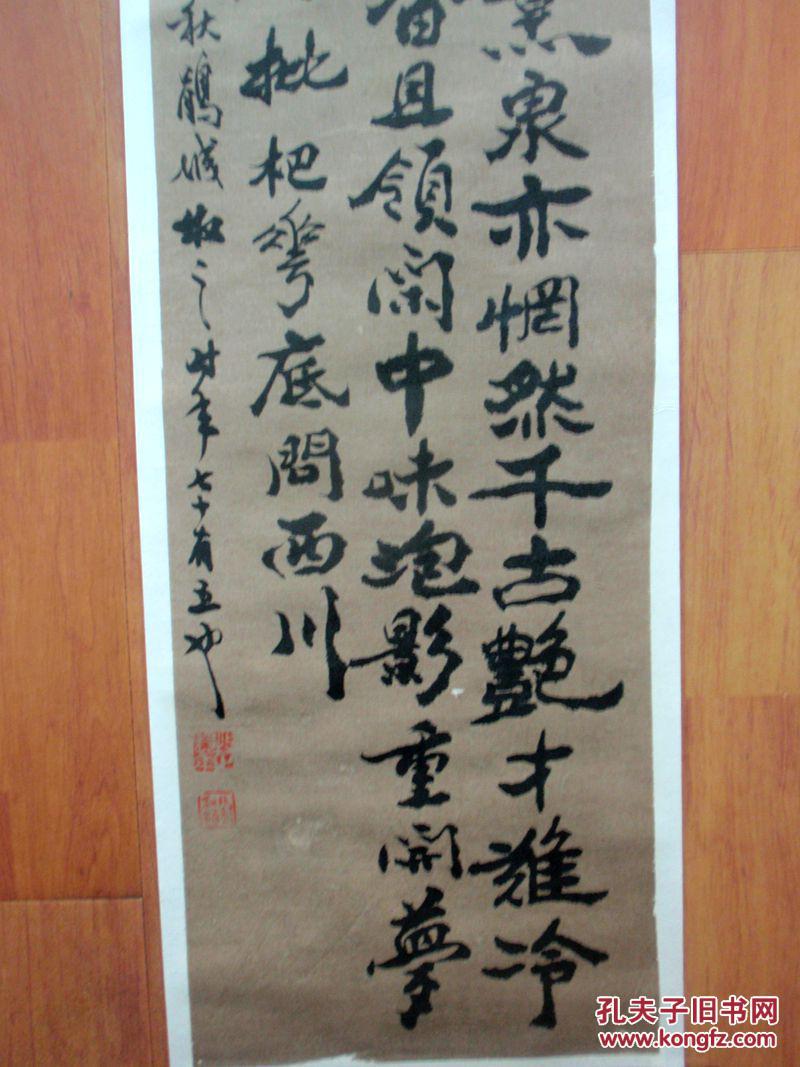 泉亦惘然千古艷才難冷
且領閑中味孢影重開夢
枇杷花底問西川
秋鶴城 之时年七十有五
孔夫子旧书网
www.kongfz.com